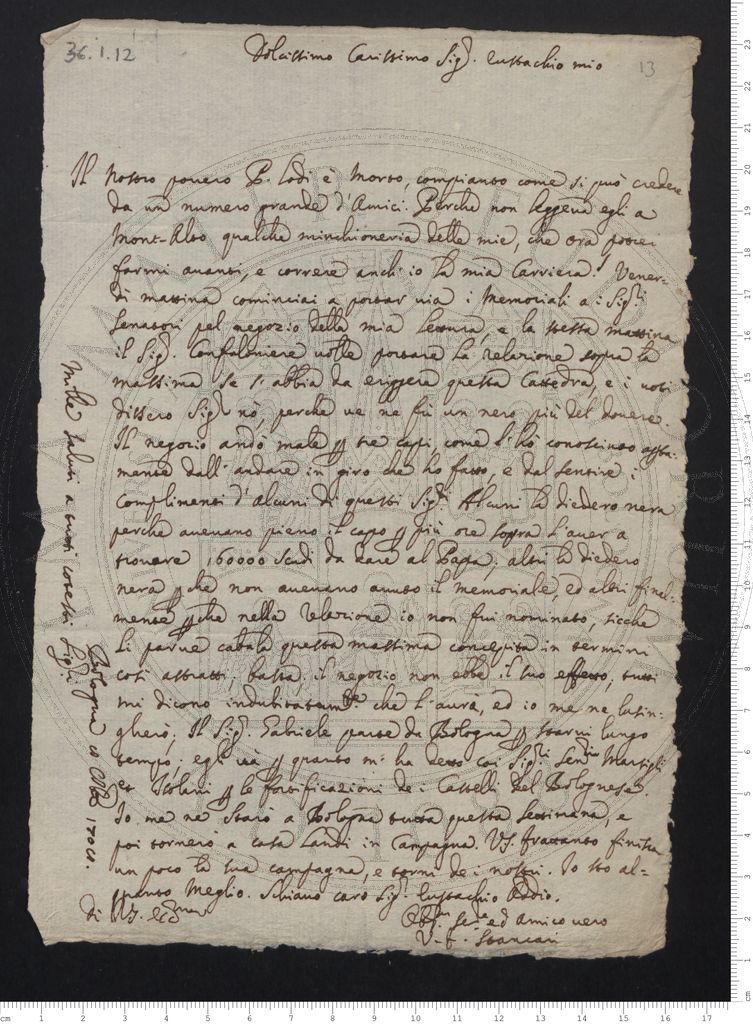 36.1.12
13
Dolcissimo Carissimo Sig.r Eustachio mio
Il nostro povero P. Lodi è morto, compianto come si può credere
da un numero grande d'Amici. Perche non leggeva egli a
Mont-Alto qualche minchioneria delle mie, che ora potrei
farmi avanti, e correre anch'io la mia Carriera. Vener-
dì mattina cominciai a portar via i Memoriali a i Sig.ri
Senatori pel negozio della mia lettura, e la stessa mattina
il Sig.r Confaloniere volle portare la relazione sopra la
massima se s'abbia da eriggere questa Cattedra, e i voti
dissero Sig.r nò, perche ve ne fù un nero più del dovere.
Il negozio andò male p tre capi, come l'hò conosciuto
dall'andare in giro che ho fatto, e dal sentire i
complimenti d'alcuni di questi Sig.ri Alcuni la diedero nera
perche avevano pieno il capo p più ore sopra l'aver a
trovare 160000 scudi da dare al Papa; altri la diedero
nera p che non avevano avuto il memoriale, ed altri final-
mente p che nella relazione io non fui nominato, sicche
li parve cabala questa massima concepita in termini
così astratti, basta, il negozio non ebbe il suo effetto, tutti
mi dicono indubitatam.te che l'avrà, ed io me ne lusin-
gherò; Il Sig.r Gabriele parte da Bologna p starvi lungo
tempo; egli và p quanto m'ha detto coi Sig.ri Sen.ri Marsigli
et Isolani p le fortificazioni de i Castelli del Bolognese.
Io me ne starò a Bologna tutta questa settimana, e
poi tornerò a casa Landi in Campagna. VS. frattanto finisca
un poco la sua campagna, e torni de i nostri. Io sto al-
quanto meglio. Schiavo caro Sig.r Eustachio Addio.
di VS.
ser.e ed amico vero
V. F. Stancari
Mille saluti a tutti cotesti Sig.ri
Bologna